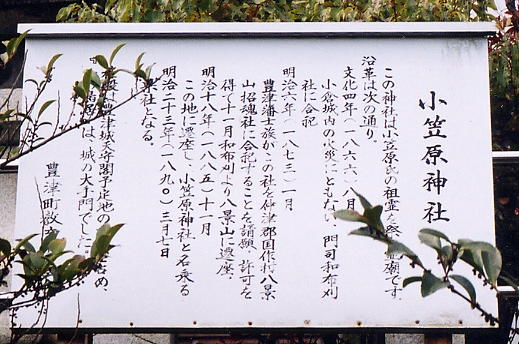 小笠原神社
この神社は小笠原氏の祖霊を祭
霊廟です。
沿革は次の通り。
文化四年(一八六六)八月
小倉城内の火災にともない、門司和布刈
社に合祀
明治六年(一八七三)一月
豊津藩士族がこの社を仲津郡国作村八景
山招魂社に合祀することを請願、許可を
得て十一月和布刈より八景山に遷座。
明治十八年(一八八五)十一月
この地に遷座し、小笠原神社と名乗る
明治二十三年(一八九〇)三月七日
県社となる。
豊津城天守閣予定地の
は、城の大手門でした
豊津町教